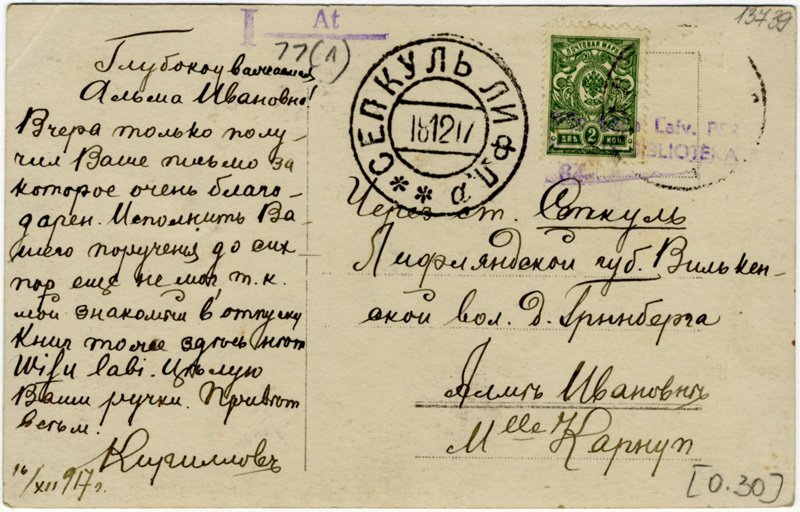 At
77(1)
13739
Глубокоуважаемая
Альма Ивановна!
Вчера только полу-
чил Ваше письмо за
которое очень благо-
дарен. Исполнить Ва-
шего порученiя до сих
пор еще не мог, т. к.
мои знакомый в отпуску
Книг тоже здѣсь нѣт
Wisu labi. Цѣлую
Ваши ручки. Привѣт
всѣм.
Кирилловъ
16/XII 917 г.
СЕПКУЛЬ ЛИФЛ
18 12 17
ПОЧТОВАЯ МАРКА
ДВѢ 2 КОП.
Latv.
BIBLIOTEKA
Через ст. Сткуль
Лифляндской губ. Вилькен-
ской вол. д. Гринберга
Алмѣ Ивановнѣ
Mlle Карнуп
[0.30]